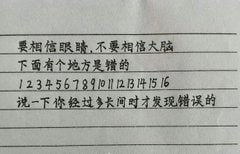 要相信眼睛,不要相信大脑
下面有个地方是错的
1 2 3 4 5 6 7 8 9 10 11 12 13 14 15 16
说一下你经过多长间时才发现错误的